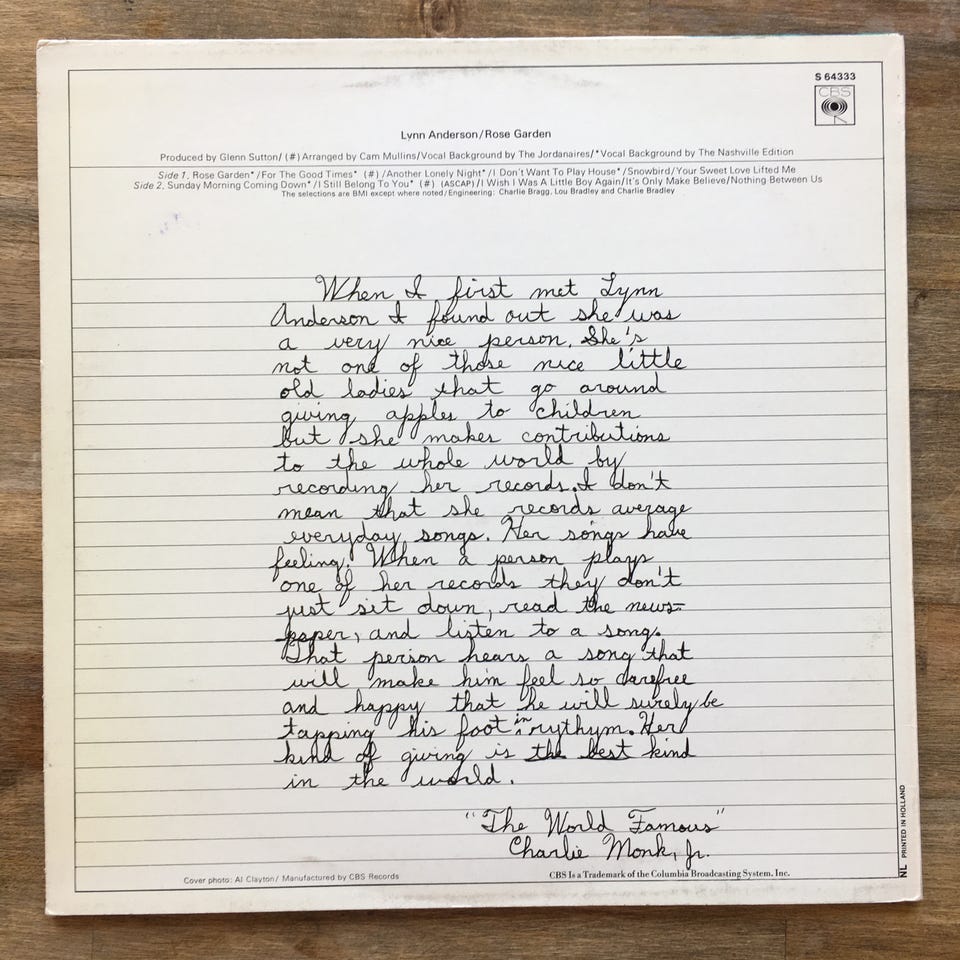 S 64333
CBS
Lynn Anderson/Rose Garden
Produced by Glenn Sutton/ (#) Arranged by Cam Mullins/Vocal Background by The Jordanaires/*Vocal Background by The Nashville Edition
Side 1. Rose Garden*/For The Good Times* (#) /Another Lonely Night*/I Don't Want To Play House*/Snowbird/Your Sweet Love Lifted Me
Side 2. Sunday Morning Coming Down*/I Still Belong To You* (#) (ASCAP)/I Wish I Was A Little Boy Again/It's Only Make Believe/Nothing Between Us
The selections are BMI except where noted/Engineering: Charlie Bragg, Lou Bradley and Charlie Bradley
When I first met Lynn
Anderson I found out she was
a very nice person. She's
not one of those nice little
old ladies that go around
giving apples to children
but she makes contributions
to the whole world by
recording her records. I don't
mean that she records average
everyday songs. Her songs have
feeling. When a person plays
one of her records they don't
just sit down, read the news-
paper, and listen to a song.
That person hears a song that
will make him feel so carefree
and happy that he will surely be
tapping his foot in rythym. Her
kind of giving is the best kind
in the world.
"The World Famous"
Charlie Monk, Jr.
Cover photo: Al Clayton/ Manufactured by CBS Records
CBS Is a Trademark of the Columbia Broadcasting System, Inc.
NL PRINTED IN HOLLAND